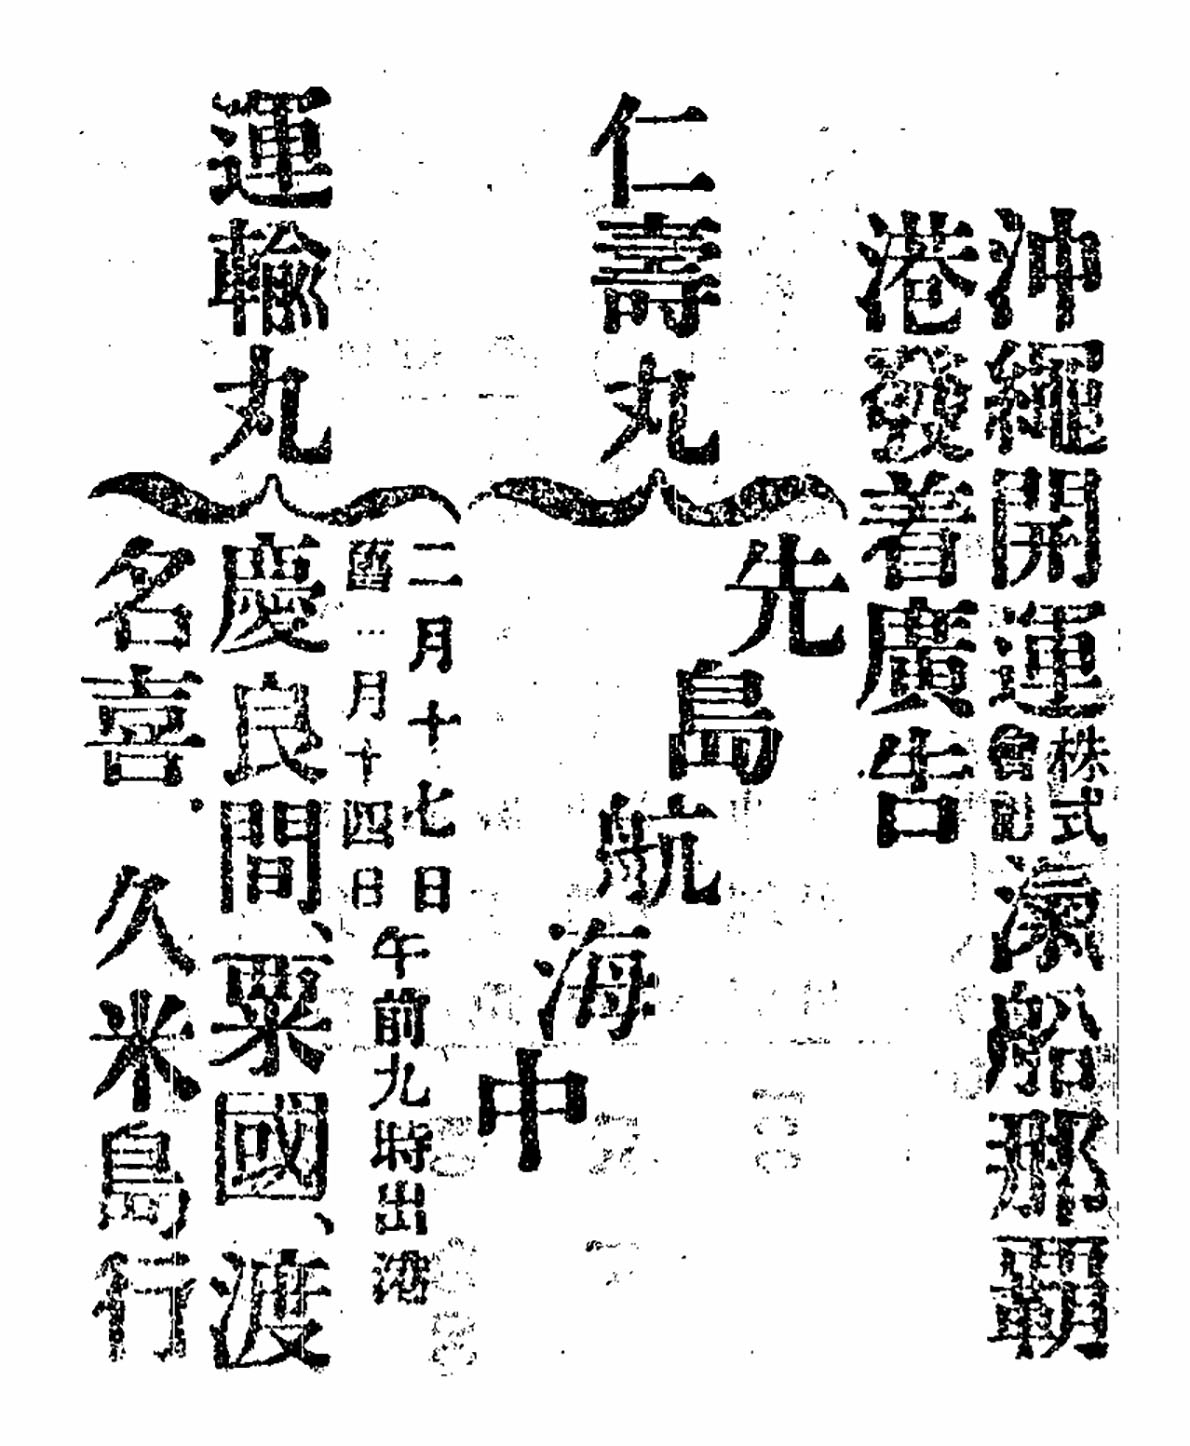 沖繩開運株式會社滊船那覇
港發着廣告
仁壽丸
先島航海中
運輸丸
二月十七日
舊一月十四日
午前九時出港
慶良間、粟國、渡
名喜、久米島行